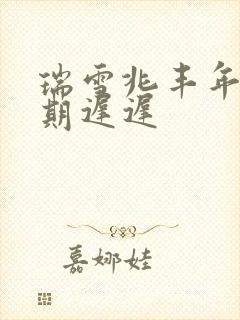 瑞雪兆丰年
期遲遲
嘉娜娃